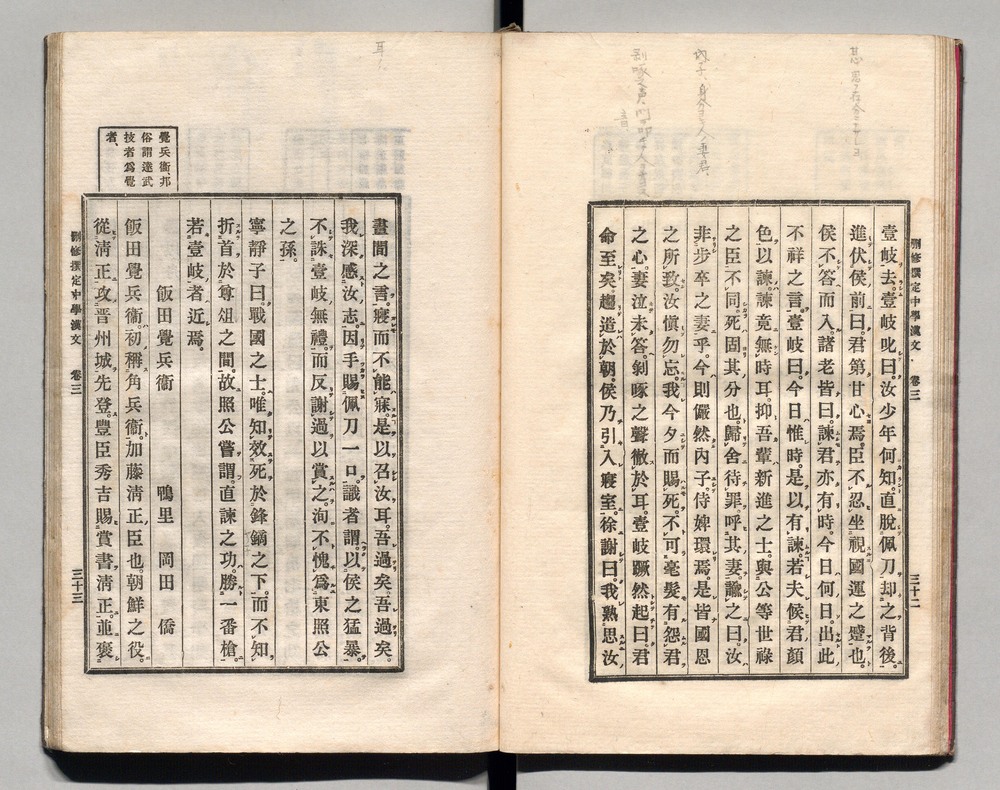 刪修撰定中學漢文 卷三 三十二
壹岐去。壹岐叱曰。汝少年何知。直脫佩刀却之背後。
進伏侯前曰。君第甘心焉。臣不忍坐視國運之蹙也。
侯不答而入。諸老皆曰。諫君亦有時。今日何日。出此
不祥之言。壹岐曰。今日惟時。是以有諫。若夫候君顏
色以諫。諫竟無時耳。抑吾輩新進之士。與公等世祿
之臣不同。死固其分也。歸舍待罪。呼其妻。謂之曰。汝
非步卒之妻乎。今則儼然內子。侍婢環焉。是皆國恩
之所致。汝愼勿忘。我今夕而賜死。不可毫髮有怨君
之心。妻泣未答。剝啄之聲徹於耳。壹岐蹶然起曰。君
命至矣。趨造於朝。侯乃引入寢室。徐謝曰。我熟思汝
晝間之言。寢而不能寐。是以召汝耳。吾過矣。吾過矣。
我深感汝志。因手賜佩刀一口。識者謂。以侯之猛暴。
不誅壹岐無禮。而反謝過以賞之。洵不愧爲東照公
之孫。
寧靜子曰。戰國之士。唯知效死於鋒鏑之下。而不知
折首於尊俎之間。故照公嘗謂。直諫之功。勝一番槍。
若壹岐者近焉。
飯田覺兵衞 鴨里 岡田 僑
飯田覺兵衞。初稱角兵衞。加藤淸正臣也。朝鮮之役。
從淸正攻晋州城先登。豐臣秀吉賜賞書淸正。並褒
覺兵衞、邦
俗謂達武
技者爲覺
者、
刪修撰定中學漢文 卷三 三十三